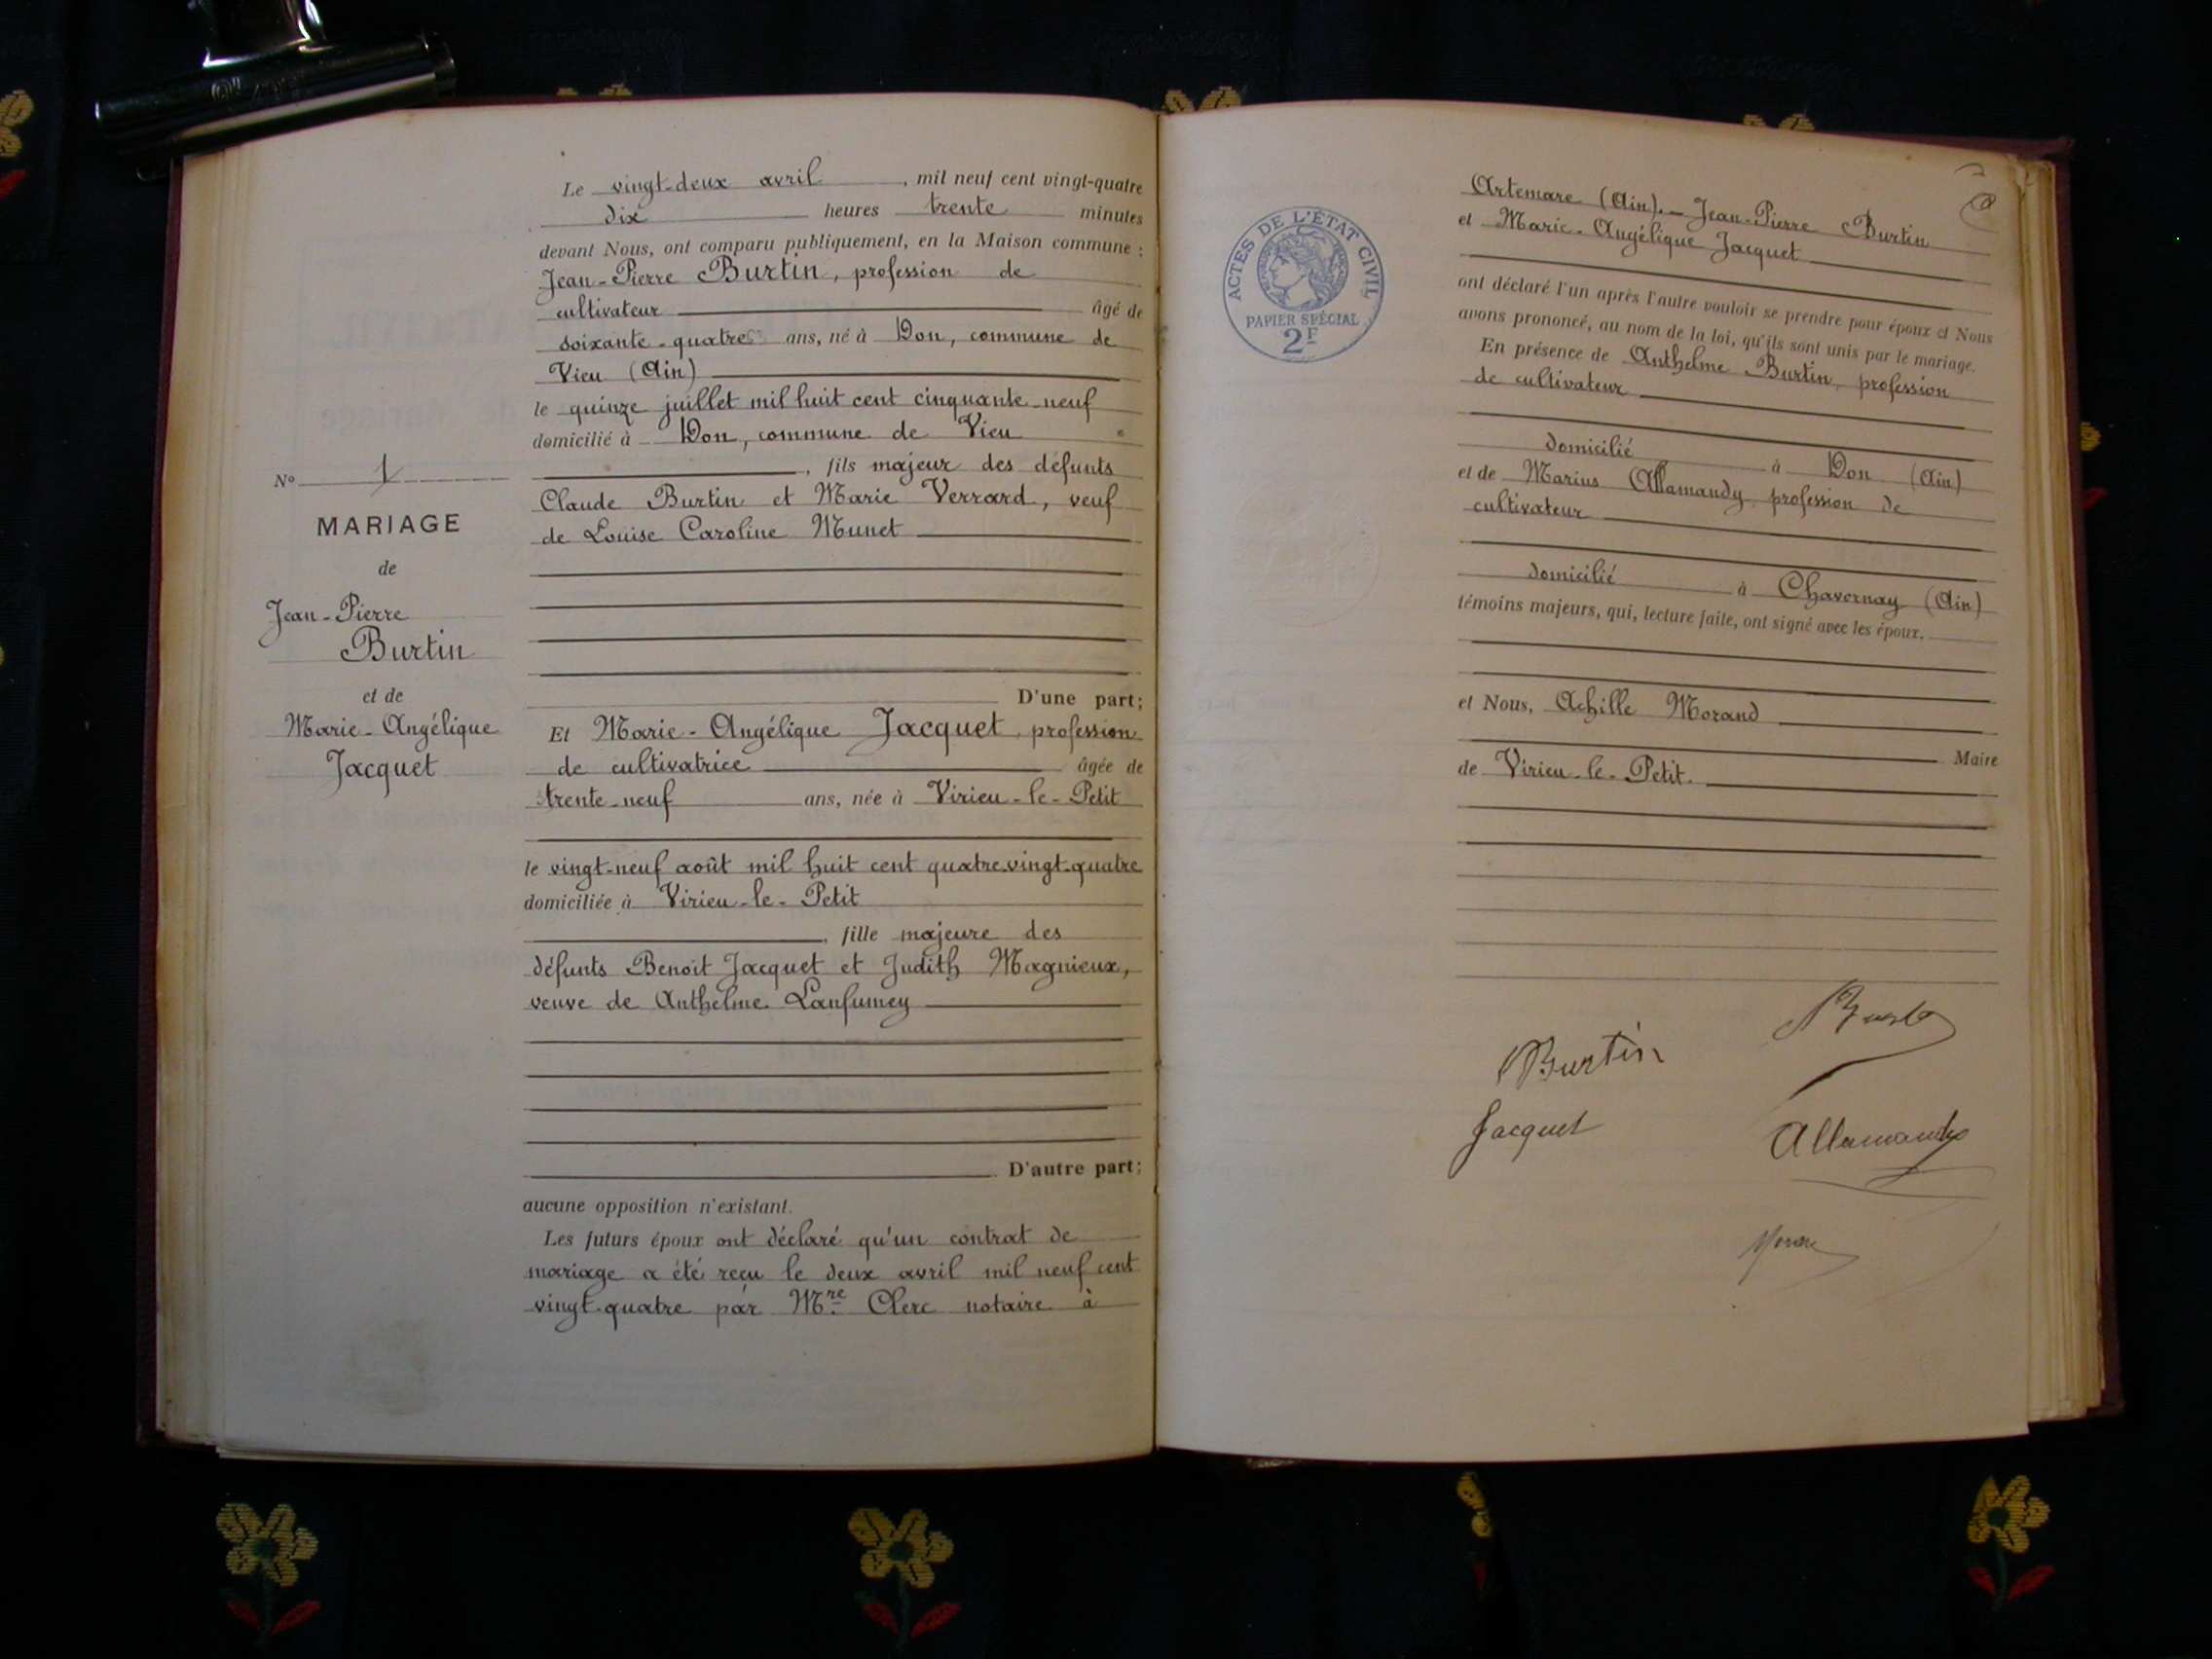 Le vingt-deux avril, mil neuf cent vingt-quatre
dix heures trente minutes
devant Nous, ont comparu publiquement, en la Maison commune :
Jean-Pierre Burtin, profession de
cultivateur âgé de
soixante-quatre ans, né à Don, commune de
Vieu (Ain)
le quinze juillet mil huit cent cinquante-neuf
domicilié à Don, commune de Vieu
, fils majeur des défunts
Claude Burtin et Marie Verrard, veuf
de Louise Caroline Munet
D'une part;
Et Marie-Angélique Jacquet, profession
de cultivatrice âgée de
trente-neuf ans, née à Virieu-le-Petit
le vingt-neuf août mil huit cent quatre-vingt-quatre
domiciliée à Virieu-le-Petit
, fille majeure des
défunts Benoit Jacquet et Judith Magnieux,
veuve de Anthelme Lanfumey
D'autre part;
aucune opposition n'existant.
Les futurs époux ont déclaré qu'un contrat de
mariage a été reçu le deux avril mil neuf cent
vingt-quatre par Mre Clerc notaire à
N° 1
MARIAGE
de
Jean-Pierre
Burtin
et de
Marie-Angélique
Jacquet
ACTES DE L'ÉTAT CIVIL
PAPIER SPÉCIAL
2F
Artemare (Ain). - Jean-Pierre Burtin
et Marie-Angélique Jacquet
ont déclaré l'un après l'autre vouloir se prendre pour époux et Nous
avons prononcé, au nom de la loi, qu'ils sont unis par le mariage.
En présence de Anthelme Burtin, profession
de cultivateur
domicilié à Don (Ain)
et de Marius Allamandy profession de
cultivateur
domicilié à Chavornay (Ain)
témoins majeurs, qui, lecture faite, ont signé avec les époux,
et Nous, Achille Morand
Maire
de Virieu-le-Petit.
Burtin
Jacquet
Allamandy